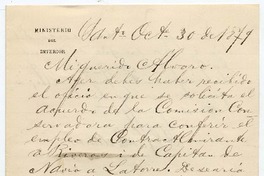 MINISTERIO
DEL
INTERIOR
Sant. Oct. 30 de 1879
Mi querido Alvaro:
Ayer debes haber recibido
el oficio en que se solicita el
acuerdo de la Comision Con
servadora para conferir el
empleo de Contra Almirante
a Riveros i de Capitan de
Navio a Latorre. Desearia